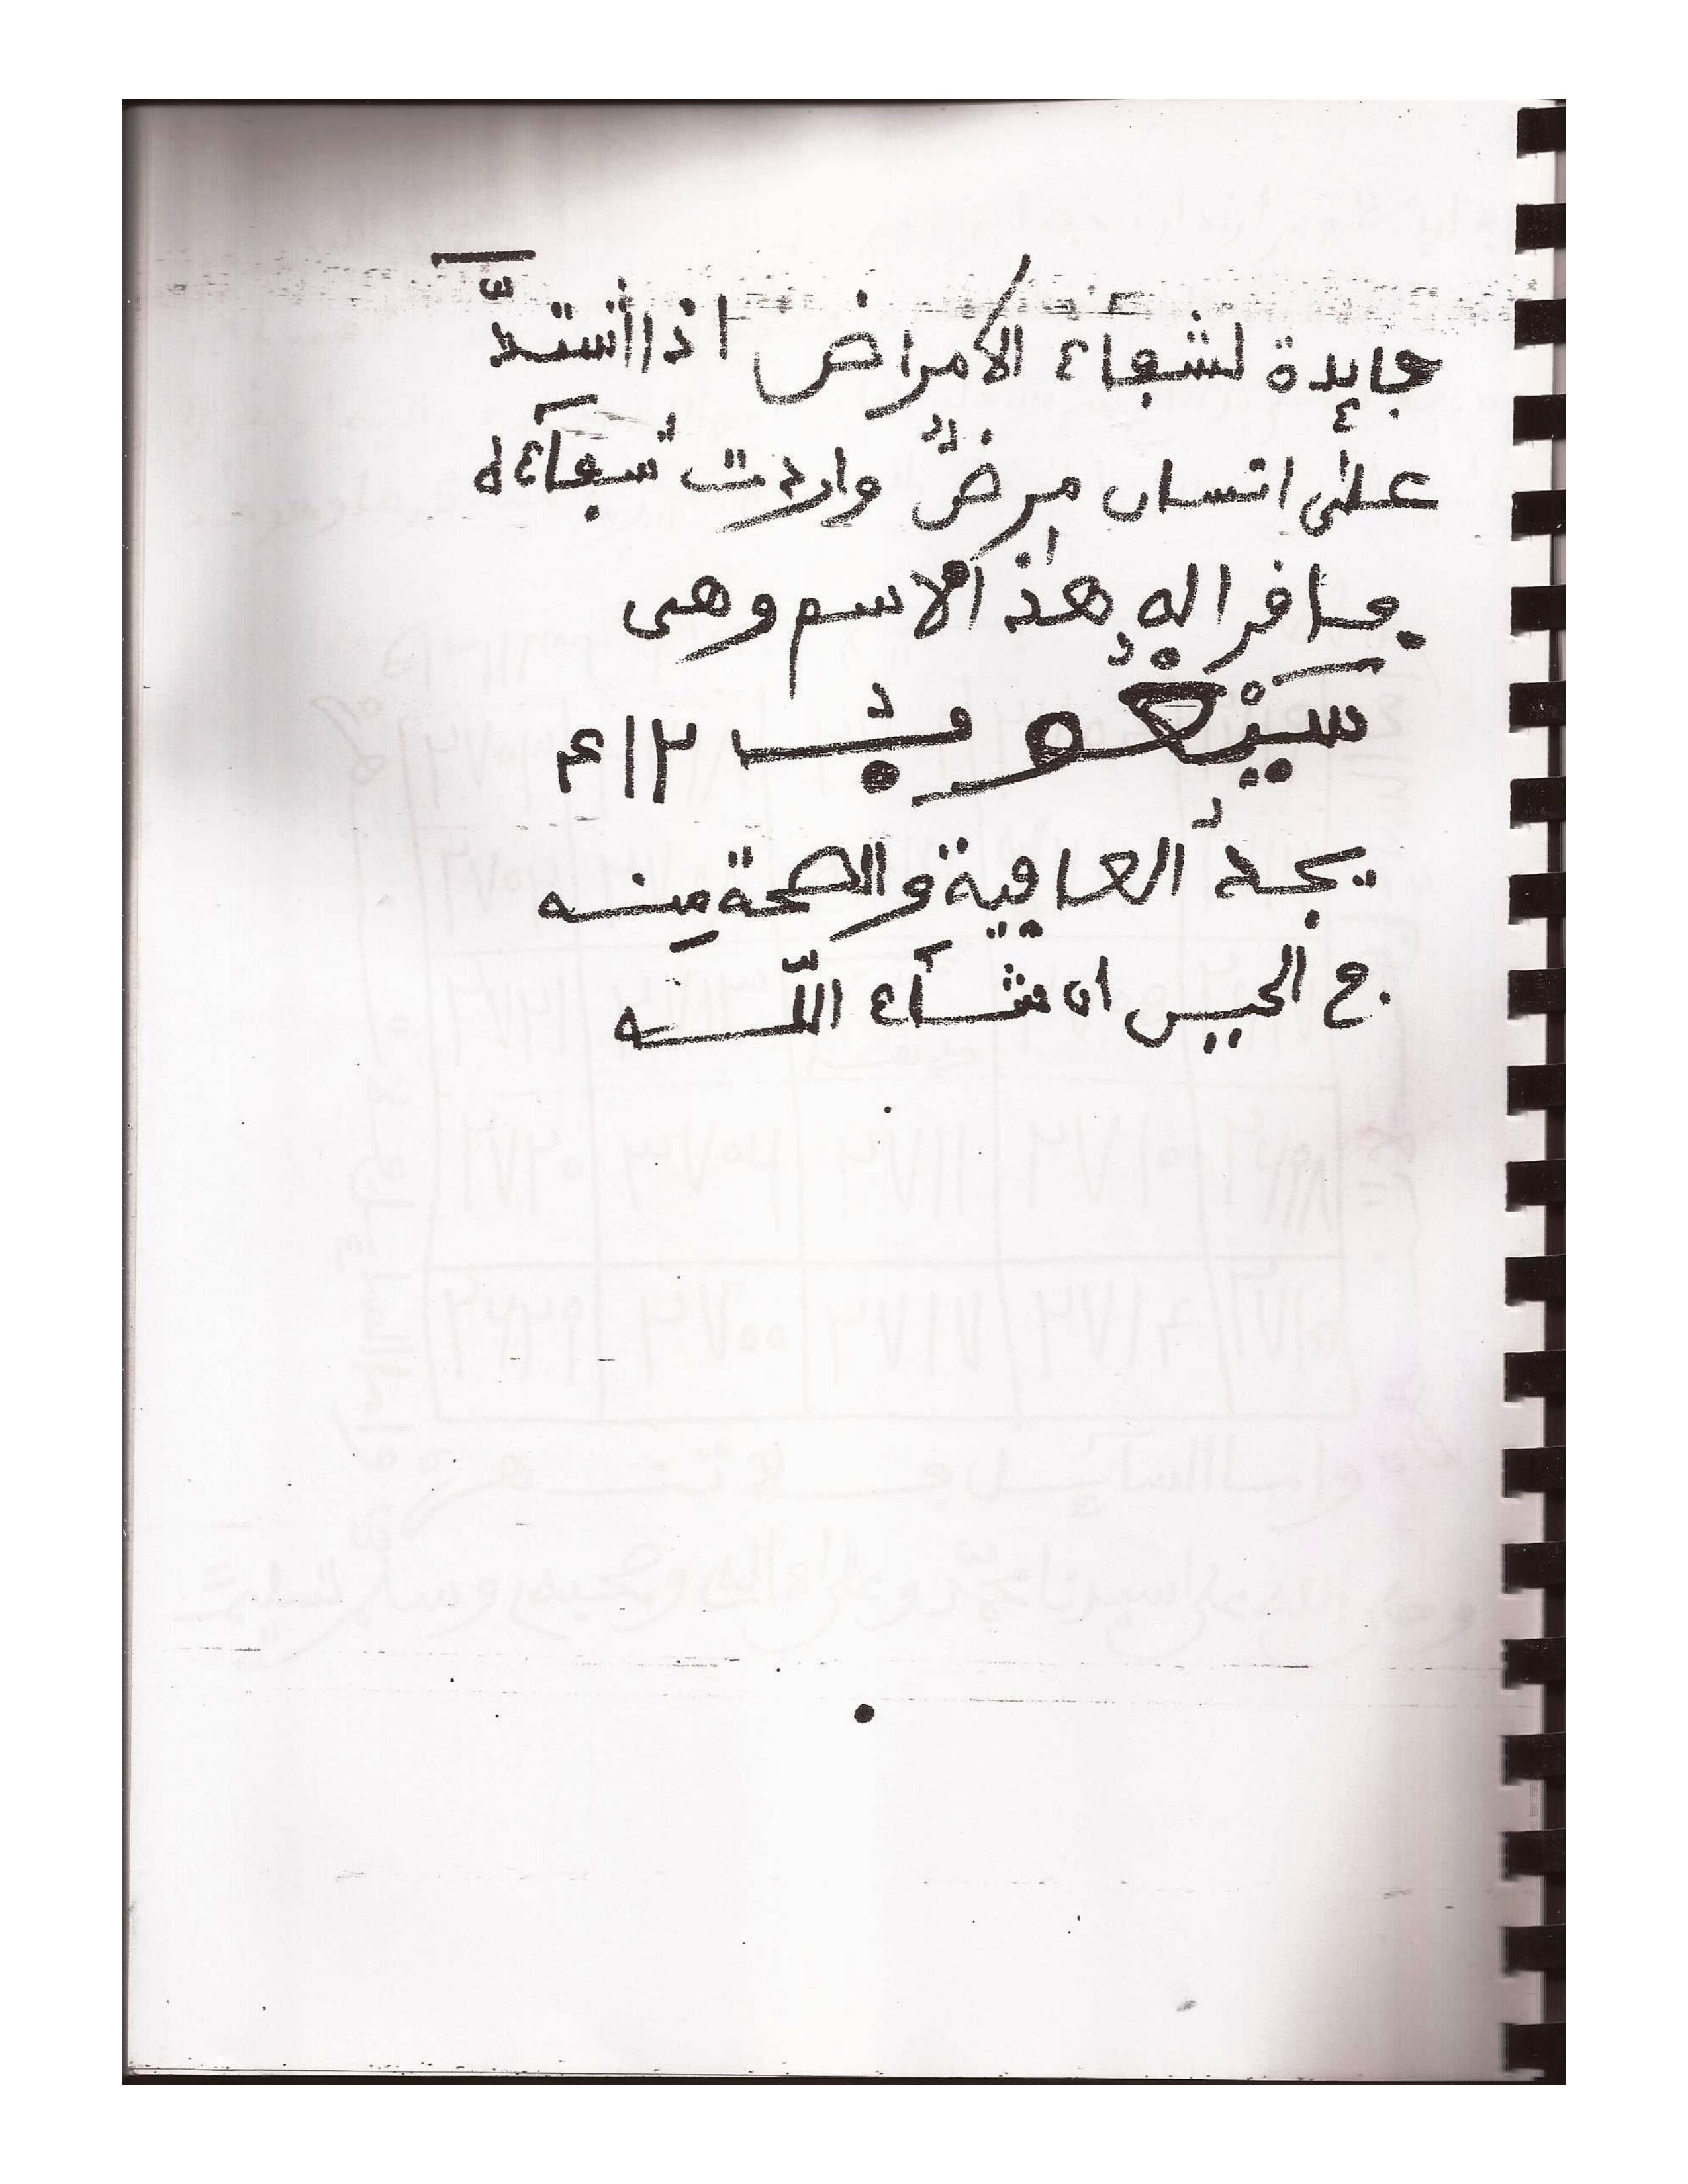 فايدة لشفاء الامراض اذا اشتدّ
على انسان مرضٌ واردت شفآءه
فاقرا له بهذا الاسم وهى
٢١١٤
يجدُ العافية والصحة منه
ج الحين ان شآء اللّه